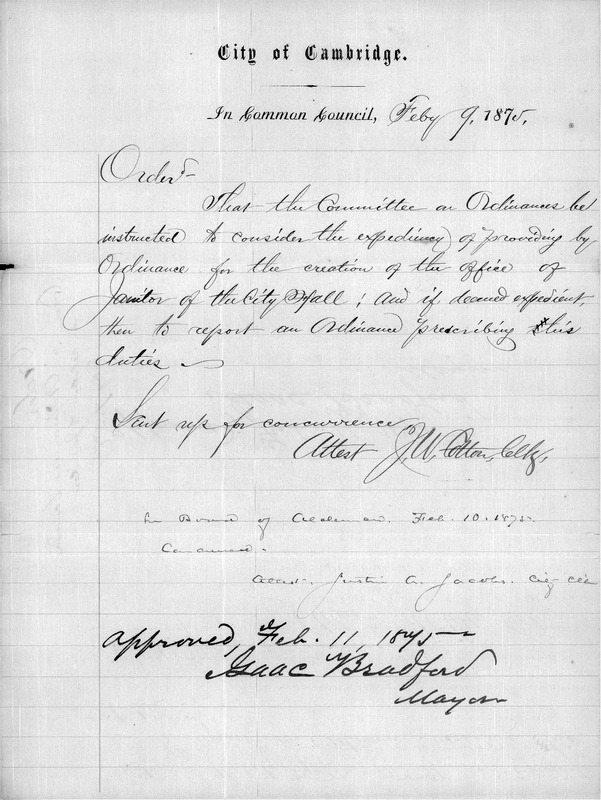 City of Cambridge.
In Common Council, Feby 9, 1875,
Ordered
That the Committee on Ordinances be
instructed to consider the expediency of providing by
Ordinance for the creation of the office of
Janitor of the City Hall; and if deemed expedient,
then to report an Ordinance prescribing his
duties
Sent up for concurrence
Attest J. W. Cotton, Clk,
In Board of Aldermen. Feb. 10. 1875.
Concurred.
Attest. Justin A. Jacobs. City Clk
approved, Feb. 11, 1875
Isaac Bradford
Mayor